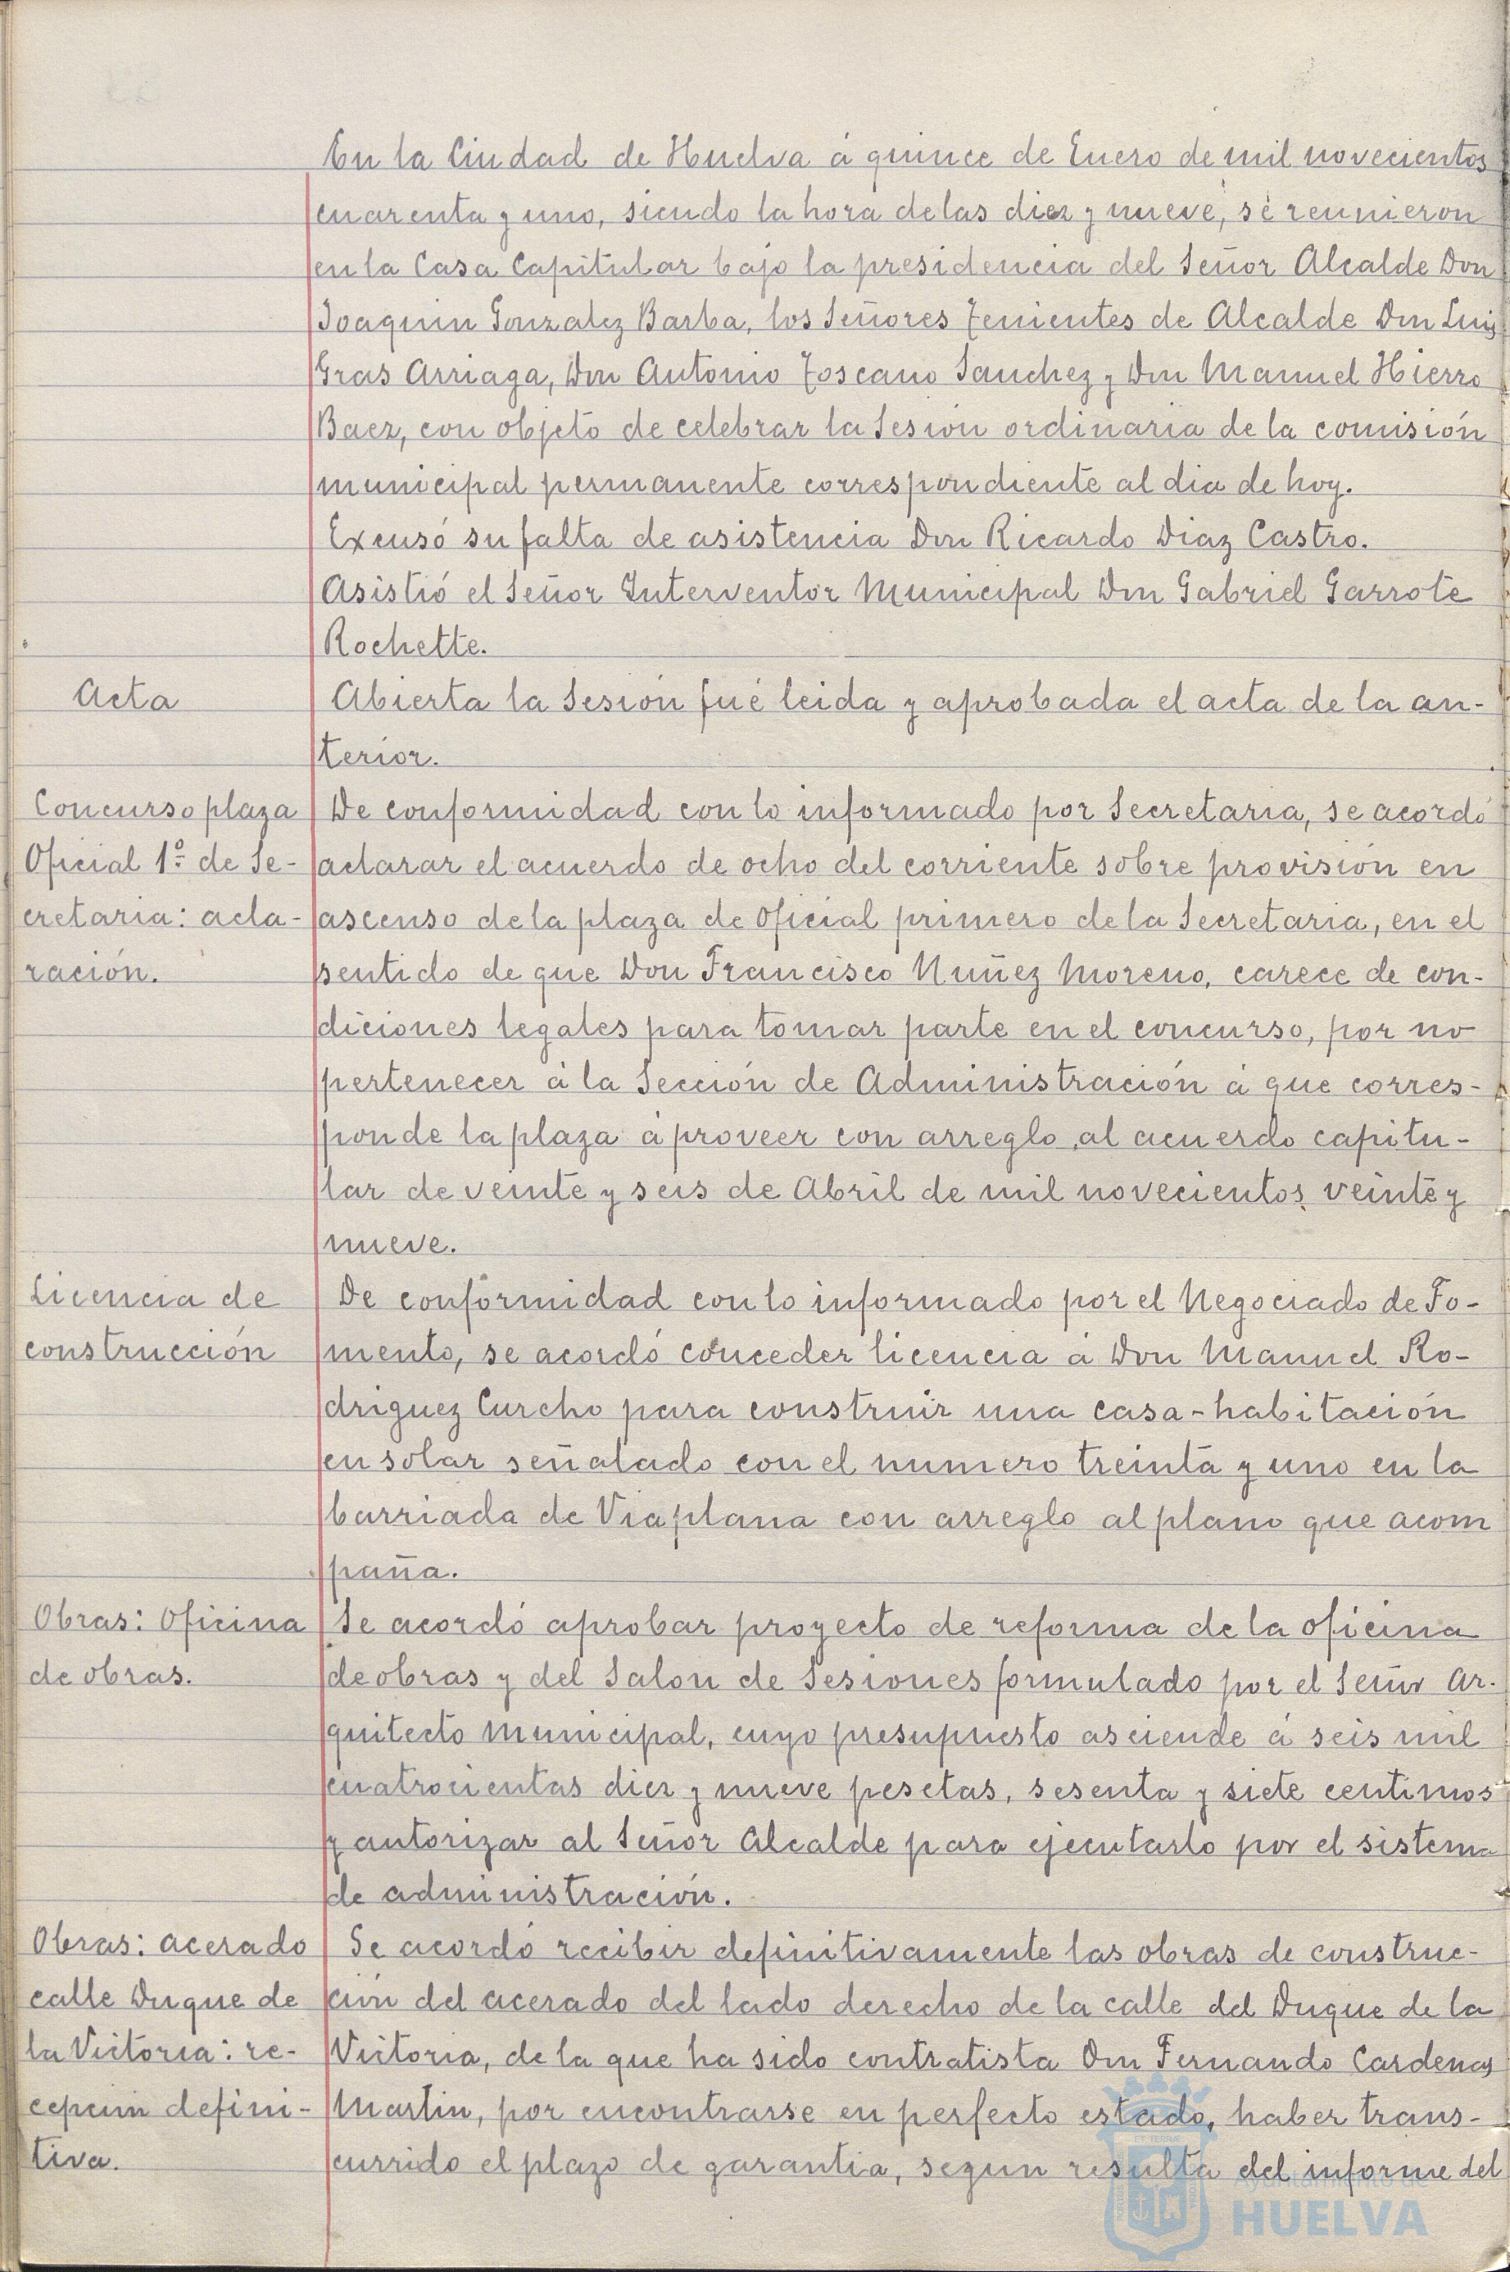 En la Ciudad de Huelva á quince de Enero de mil novecientos
cuarenta y uno, siendo la hora de las diez y nueve, se reunieron
en la Casa Capitular bajo la presidencia del Señor Alcalde Don
Joaquin Gonzalez Barba, los Señores Tenientes de Alcalde Don Luis
Gras Arriaga, Don Antonio Toscano Sanchez y Don Manuel Hierro
Baez, con objeto de celebrar la Sesión ordinaria de la comisión
municipal permanente correspondiente al dia de hoy.
Excusó su falta de asistencia Don Ricardo Diaz Castro.
Asistió el Señor Interventor Municipal Don Gabriel Garrote
Rochette.
Acta
Abierta la Sesión fué leida y aprobada el acta de la an-
terior.
Concurso plaza
Oficial 1º de Se-
cretaria: acla-
ración.
De conformidad con lo informado por Secretaria, se acordó
aclarar el acuerdo de ocho del corriente sobre provisión en
ascenso de la plaza de Oficial primero de la Secretaria, en el
sentido de que Don Francisco Nuñez Moreno, carece de con-
diciones legales para tomar parte en el concurso, por no
pertenecer á la Sección de Administración á que corres-
ponde la plaza á proveer con arreglo al acuerdo capitu-
lar de veinte y seis de Abril de mil novecientos veinte y
nueve.
Licencia de
construcción
De conformidad con lo informado por el Negociado de Fo-
mento, se acordó conceder licencia á Don Manuel Ro-
driguez Curcho para construir una casa-habitación
en solar señalado con el numero treinta y uno en la
barriada de Viaplana con arreglo al plano que acom
paña.
Obras: Oficina
de obras.
Se acordó aprobar proyecto de reforma de la oficina
de obras y del Salon de Sesiones formulado por el Señor Ar-
quitecto Municipal, cuyo presupuesto asciende á seis mil
cuatrocientas diez y nueve pesetas, sesenta y siete centimos
y autorizar al Señor Alcalde para ejecutarlo por el sistema
de administración.
Obras: acerado
calle Duque de
la Victoria: re-
cepción defini-
tiva.
Se acordó recibir definitivamente las obras de construc-
ción del acerado del lado derecho de la calle del Duque de la
Victoria, de la que ha sido contratista Don Fernando Cardenas
Martin, por encontrarse en perfecto estado, haber trans-
currido el plazo de garantia, segun resulta del informe del
Ayuntamiento de
HUELVA